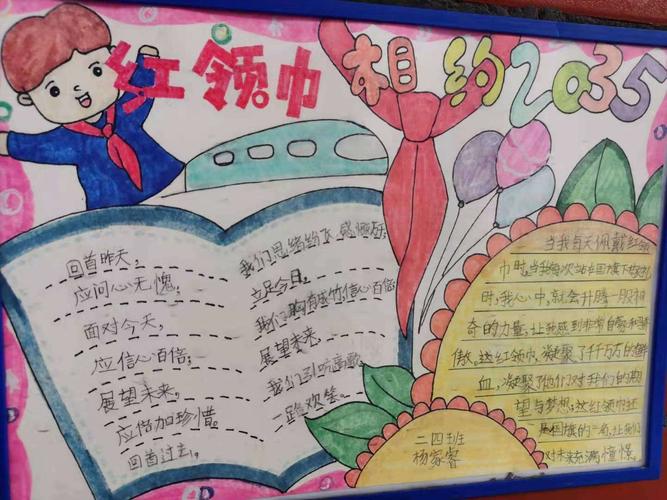 红领巾 相约2035
回首昨天,
应问心无愧,
面对今天,
应信心百倍;
展望未来,
应倍加珍惜。
回首过去,
我们思绪纷飞,感慨万千
立足今日,
我们胸有成竹,信心百倍
展望未来,
我们引吭高歌
一路欢笑。
当我每天佩戴红领
巾时,当我每次站在国旗下敬礼
时,我心中,就会升腾一股神
奇的力量,让我感到非常自豪和骄
傲,这红领巾,凝聚了千千万万的鲜
血,凝聚了他们对我们的期
望与梦想;这红领巾还
是国旗的一角,让我们
对未来充满憧憬。
二四班
杨家睿